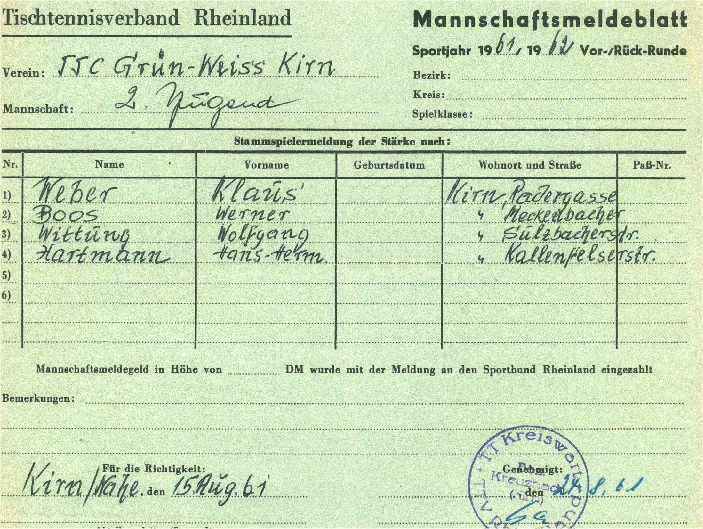 Tischtennisverband Rheinland
Mannschaftsmeldeblatt
Sportjahr 1961, 1962 Vor-/Rück-Runde
Verein: TTC Grün-Weiss Kirn
Bezirk:
Kreis:
Mannschaft: 2. Jugend
Spielklasse:
Stammspielermeldung der Stärke nach:
Nr. Name Vorname Geburtsdatum Wohnort und Straße Paß-Nr.
1) Weber Klaus Kirn, Radergasse
2) Boos Werner " Meckenbacher
3) Wittung Wolfgang " Sulzbacherstr.
4) Hartmann Hans-Herm. " Kallenfelserstr.
5)
6)
Mannschaftsmeldegeld in Höhe von DM wurde mit der Meldung an den Sportbund Rheinland eingezahlt
Bemerkungen:
TT Kreiswart
Kreuznach
Für die Richtigkeit: Genehmigt:
Kirn/Nahe, den 15. Aug. 61 den 24.8.61